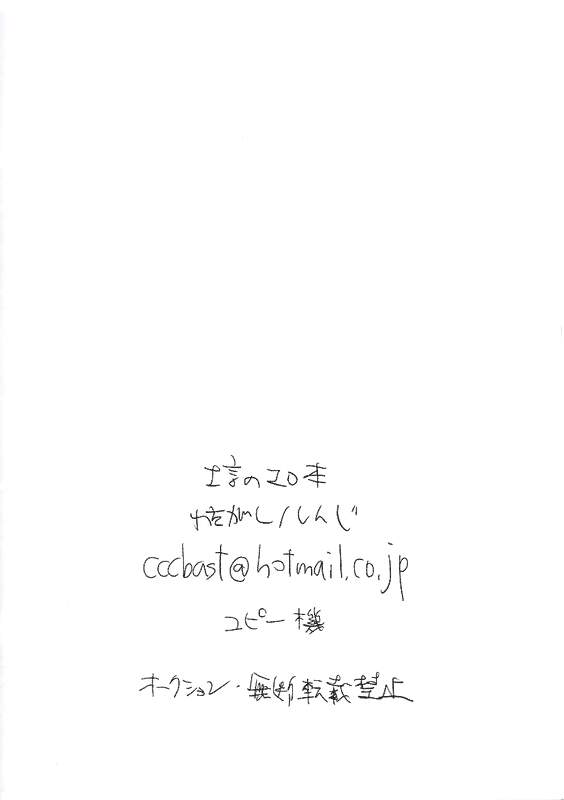 の エロ本
がし/しんじ
cccbast@hotmail.co.jp
コピー機
オークション・無断転載禁止